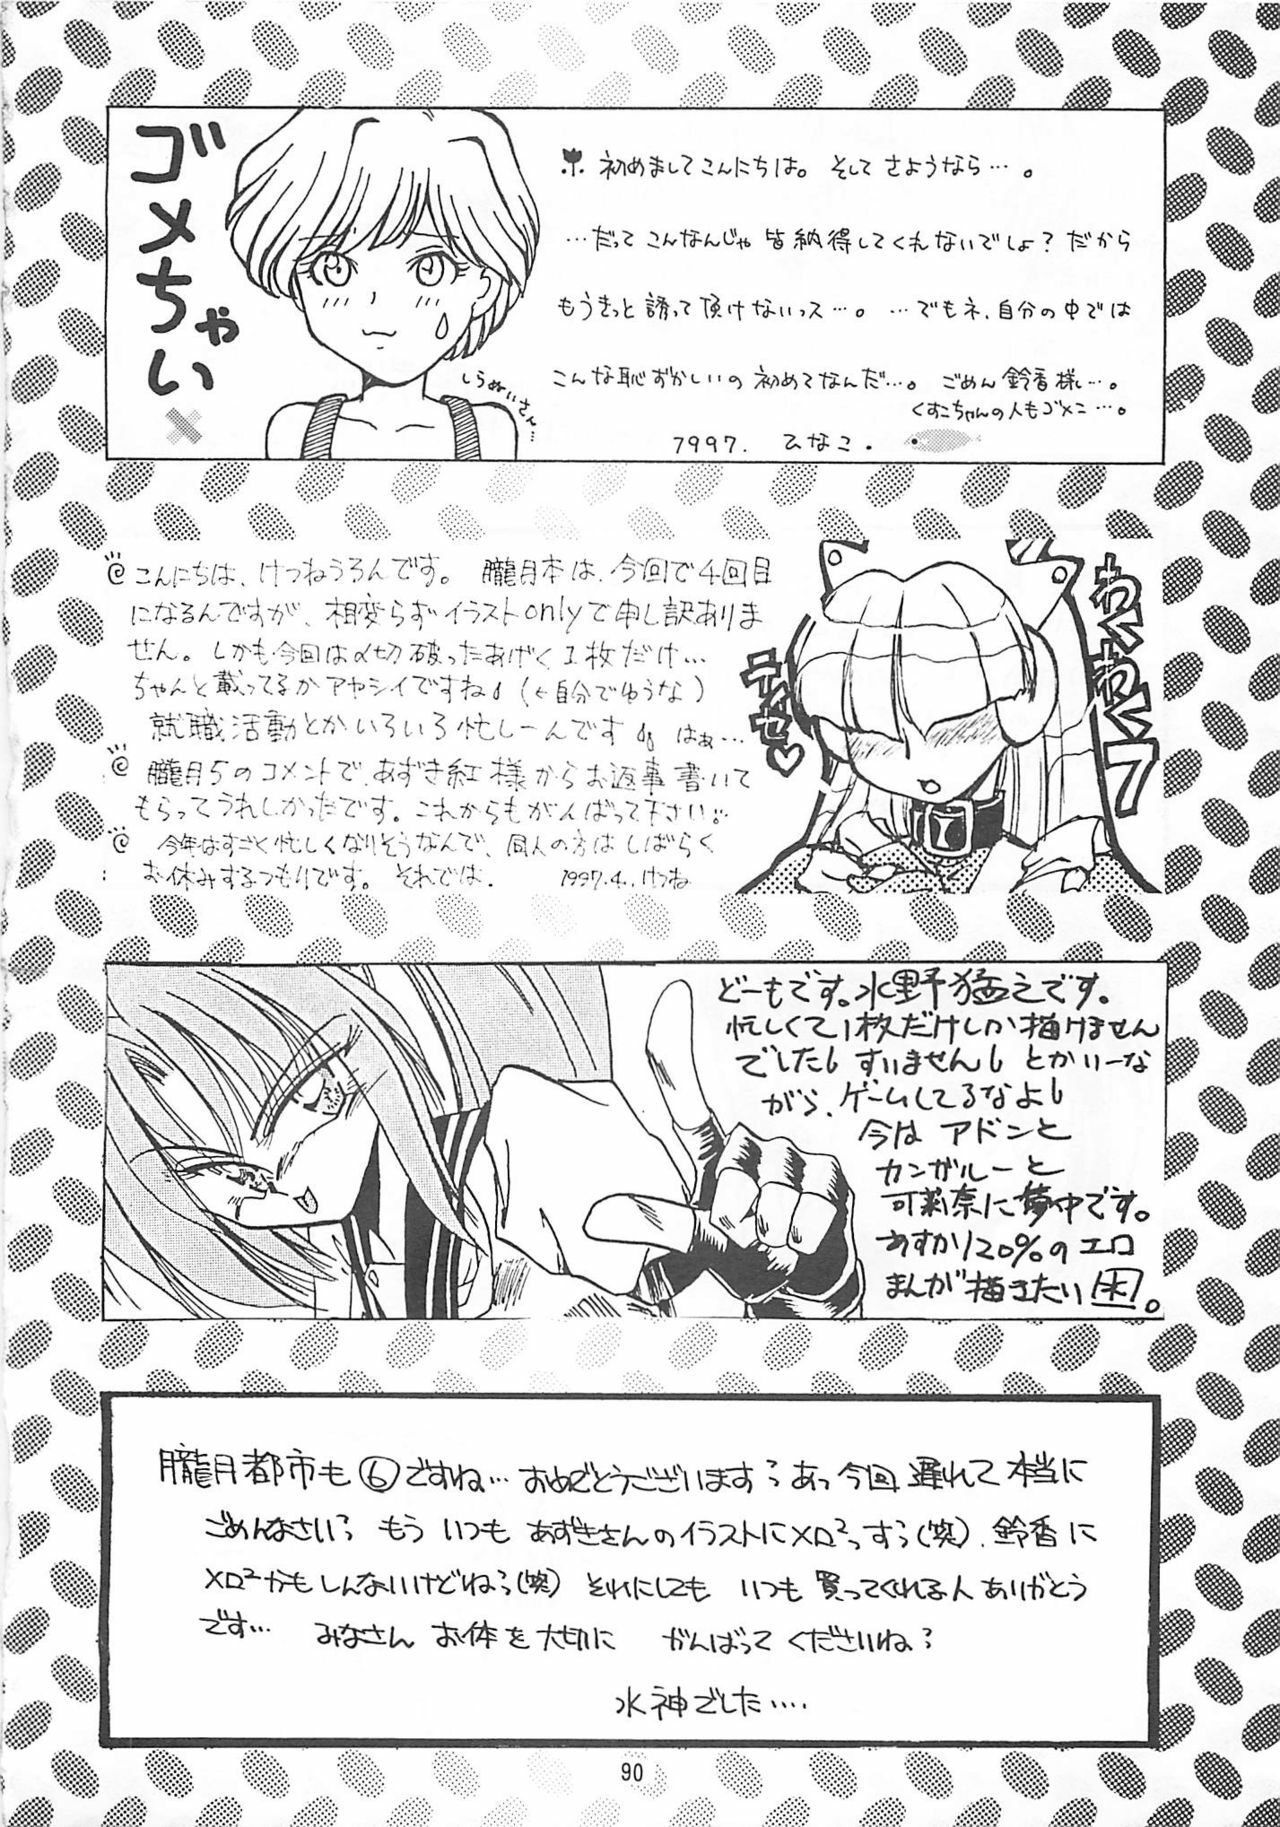 ゴメちゃい
初めましてこんにちは。そしてさようなら…。
…だってこんなんじゃ皆納得してくれないでしょ？だから
もうきっと誘って頂けないっス…。…でもネ、自分の中では
こんな恥ずかしいの初めてなんだ…。ごめん鈴香様…。
くすこちゃんの人もゴメン…。
1997. ひなこ.
こんにちは、けつねうろんです。朧月本は、今回で4回目
になるんですが、相変らずイラストonlyで申し訳ありま
せん。しかも今回は〆切破ったあげく1枚だけ…
ちゃんと載ってるかアヤシイですね（←自分でゆうな）
就職活動とかいろいろ忙しーんです はぁ…
朧月5のコメントで、あずき紅様からお返事書いて
もらってうれしかったです。これからもがんばって下さい
今年はすごく忙しくなりそうなんで、同人の方はしばらく
お休みするつもりです。それでは.
1997.4., けつね
わくわく7
ティセ♡
どーもです。水野猛えです。
忙しくて1枚だけしか描けません
でした すいません とかいーな
がら、ゲームしてるなよ
今は アドンと
カンガルーと
可莉奈に夢中です。
あすか120%のエロ
まんが描きたい 困。
朧月都市も⑥ですね… おめでとうございます あっ今回 遅れて 本当に
ごめんなさい もう いつも あずきさんのイラストにメロ²っす（笑）. 鈴香に
メロ²かもしんないけどね（笑） それにしても いつも 買ってくれる人ありがとう
です… みなさん お体を大切に がんばって くださいね
水神でした....
90